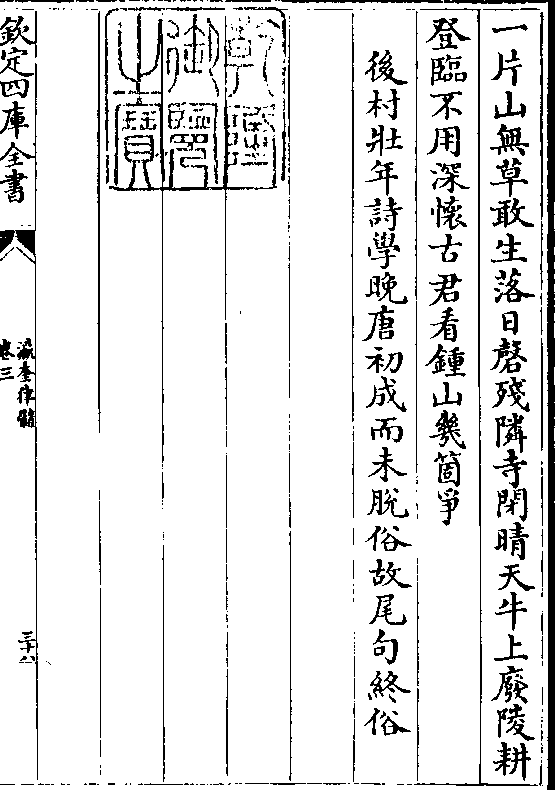 一片山無草敢生落日磬殘隣寺閉晴天牛上廢陵耕
登臨不用深懷古君看鍾山幾箇爭
後村壯年詩學晚唐初成而未脫俗故尾句終俗
乾隆御覽之寶
欽定四庫全書
瀛奎律髓
卷三
三十八